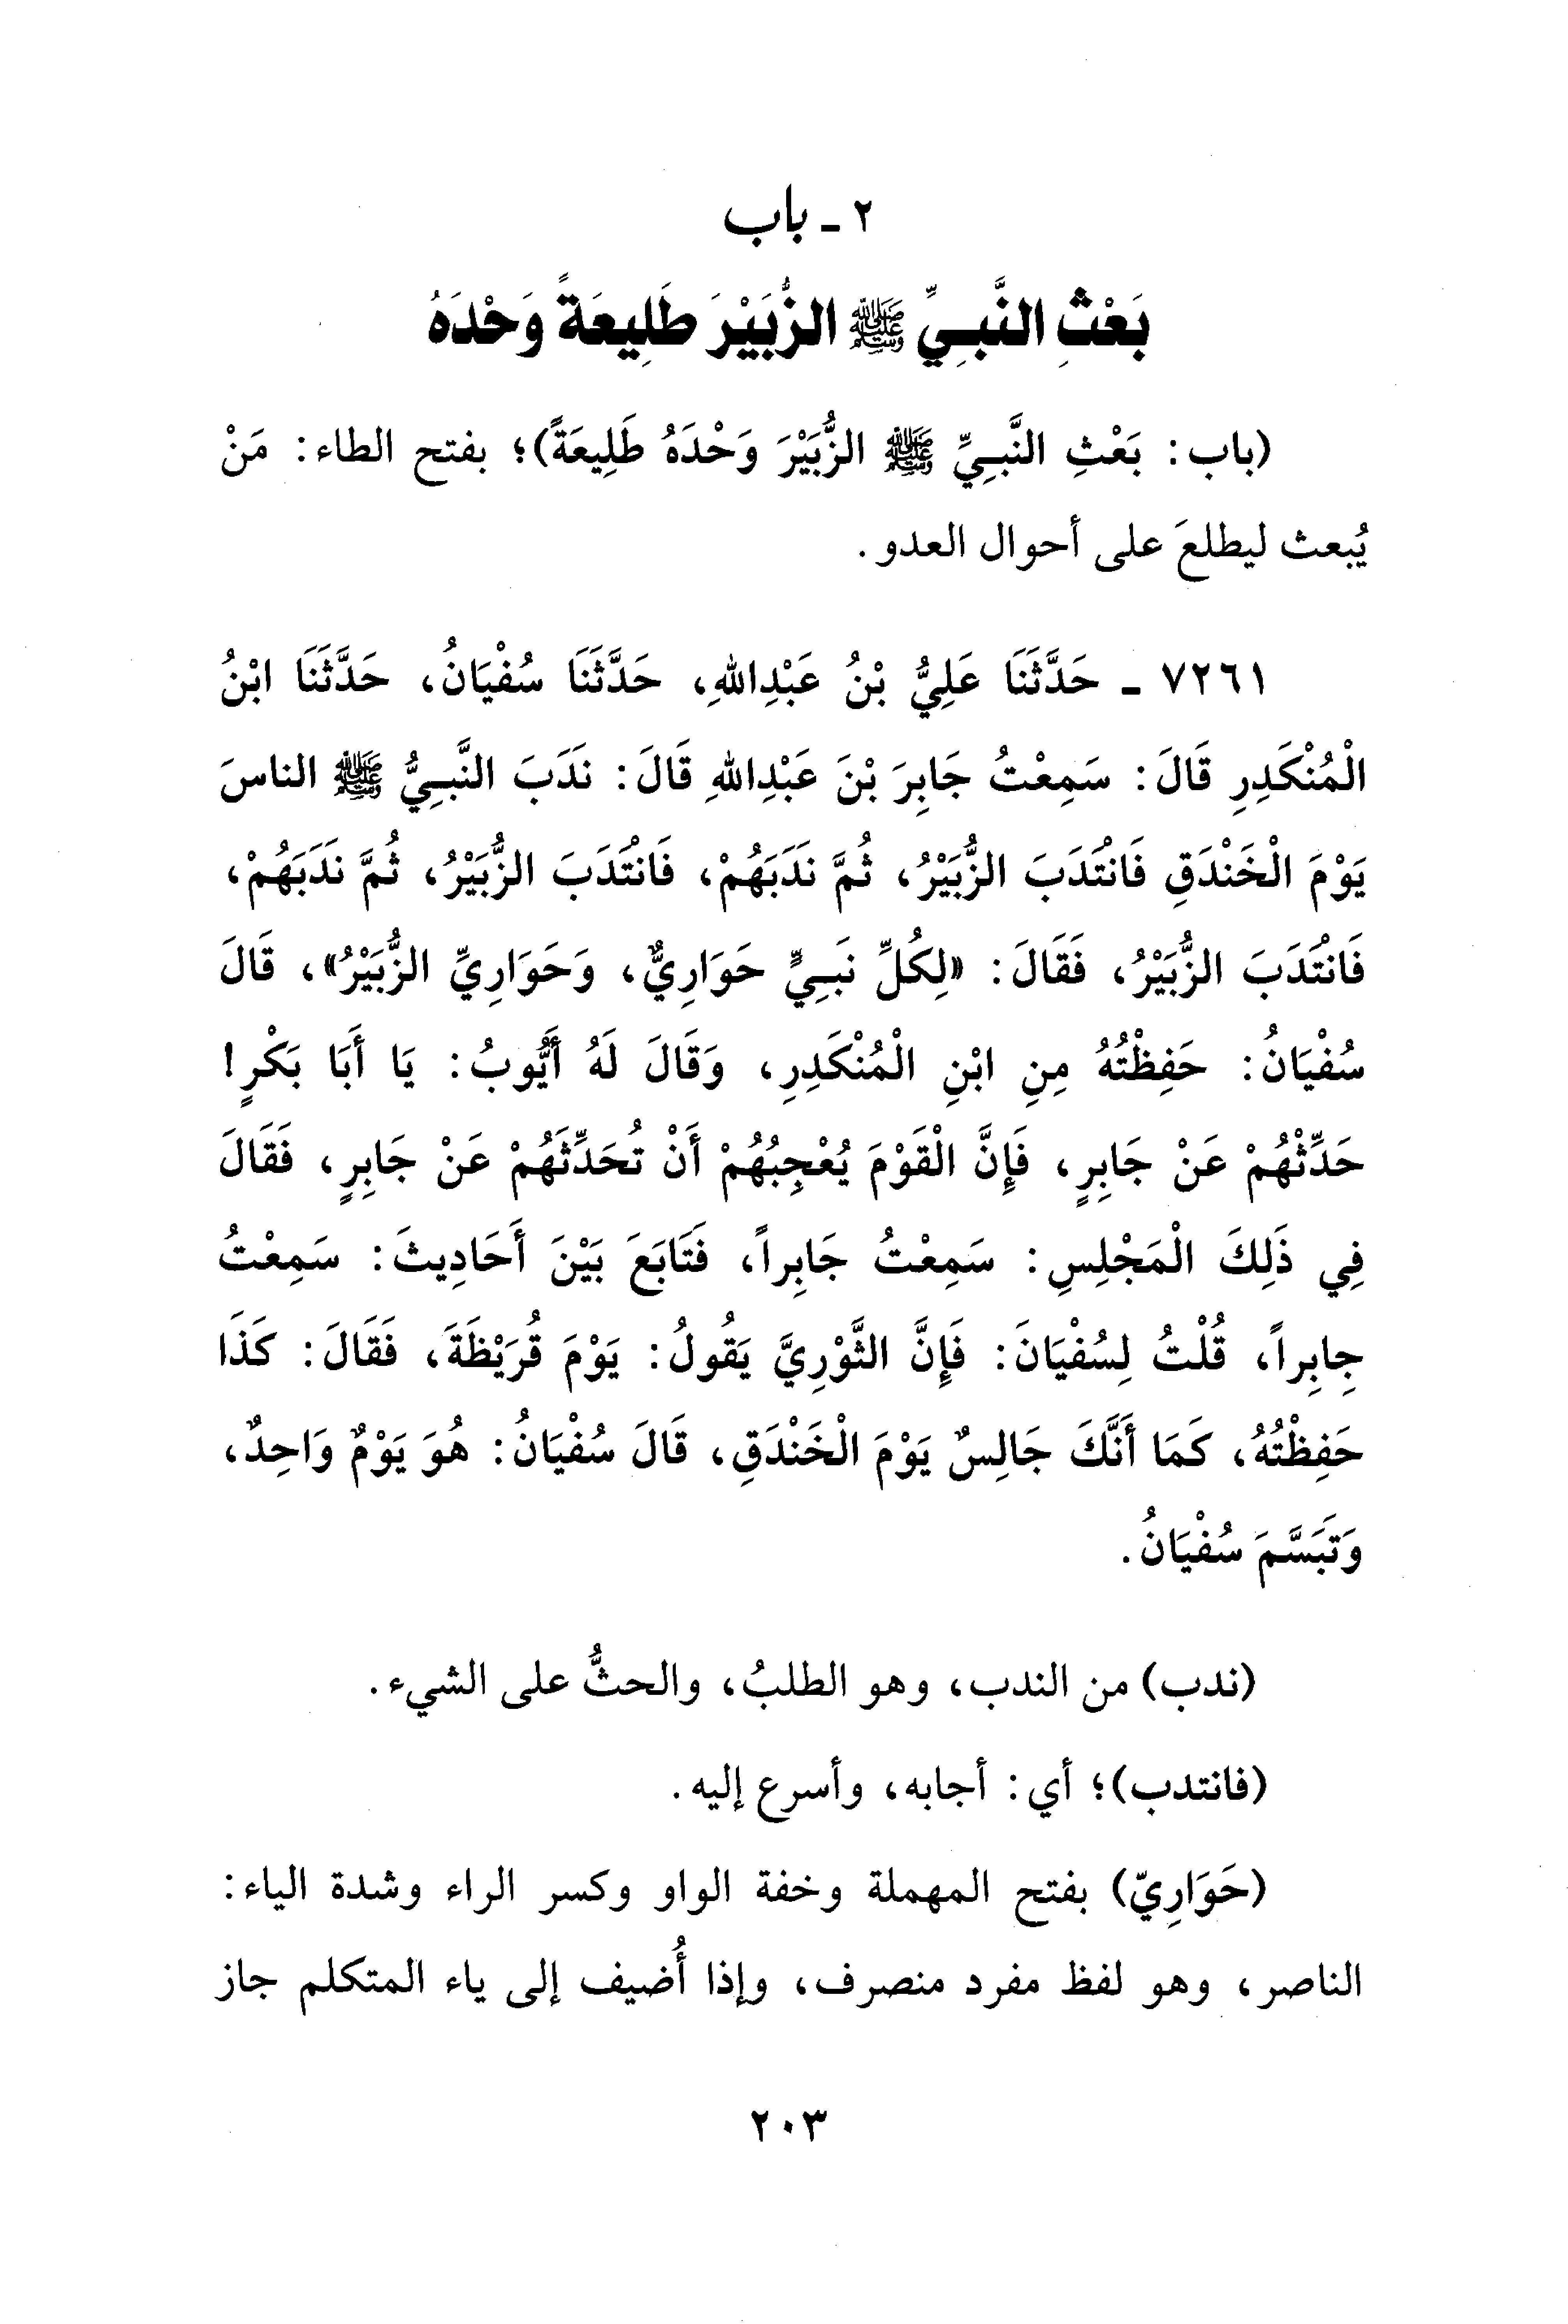 ٢ ـ باب
بَعْثِ النَّبِيِّ ﷺ الزُّبَيْرَ طَلِيعَةً وَحْدَهُ
(باب: بَعْثِ النَّبِيِّ ﷺ الزُّبَيْرَ وَحْدَهُ طَلِيعَةً)؛ بفتح الطاء: مَنْ
يُبعث ليطلعَ على أحوال العدو.
٧٢٦١ ـ حَدَّثَنَا عَلِيُّ بْنُ عَبْدِاللهِ، حَدَّثَنَا سُفْيَانُ، حَدَّثَنَا ابْنُ
الْمُنْكَدِرِ قَالَ: سَمِعْتُ جَابِرَ بْنَ عَبْدِاللهِ قَالَ: نَدَبَ النَّبِيُّ ﷺ الناسَ
يَوْمَ الْخَنْدَقِ فَانْتَدَبَ الزُّبَيْرُ، ثُمَّ نَدَبَهُمْ، فَانْتَدَبَ الزُّبَيْرُ، ثُمَّ نَدَبَهُمْ،
فَانْتَدَبَ الزُّبَيْرُ، فَقَالَ: «لِكُلِّ نَبِيٍّ حَوَارِيٌّ، وَحَوَارِيِّ الزُّبَيْرُ»، قَالَ
سُفْيَانُ: حَفِظْتُهُ مِنِ ابْنِ الْمُنْكَدِرِ، وَقَالَ لَهُ أَيُّوبُ: يَا أَبَا بَكْرٍ!
حَدِّثْهُمْ عَنْ جَابِرٍ، فَإِنَّ الْقَوْمَ يُعْجِبُهُمْ أَنْ تُحَدِّثَهُمْ عَنْ جَابِرٍ، فَقَالَ
فِي ذَلِكَ الْمَجْلِسِ: سَمِعْتُ جَابِراً، فَتَابَعَ بَيْنَ أَحَادِيثَ: سَمِعْتُ
جِابِراً، قُلْتُ لِسُفْيَانَ: فَإِنَّ الثَّوْرِيَّ يَقُولُ: يَوْمَ قُرَيْظَةَ، فَقَالَ: كَذَا
حَفِظْتُهُ، كَمَا أَنَّكَ جَالِسٌ يَوْمَ الْخَنْدَقِ، قَالَ سُفْيَانُ: هُوَ يَوْمٌ وَاحِدٌ،
وَتَبَسَّمَ سُفْيَانُ.
(ندب) من الندب، وهو الطلبُ، والحثُّ على الشيء.
(فانتدب)؛ أي: أجابه، وأسرع إليه.
(حَوَارِيّ) بفتح المهملة وخفة الواو وكسر الراء وشدة الياء:
الناصر، وهو لفظ مفرد منصرف، وإذا أُضيف إلى ياء المتكلم جاز
٢٠٣